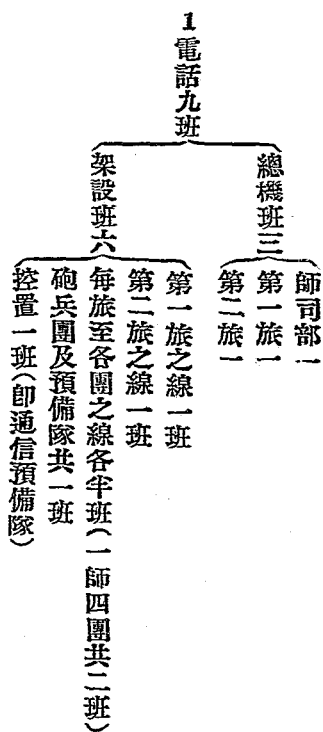 1電話九班
總機班三
師司部一
第一旅一
第二旅一
架設班六
第一旅之線一班
第二旅之線一班
每旅至各團之線各半班(一師四團共二班)
砲兵團及預備隊共一班
控置一班(卽通信預備隊)